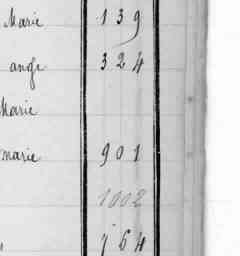 Marie 139
ange 324
Marie
marie 901
1002
764